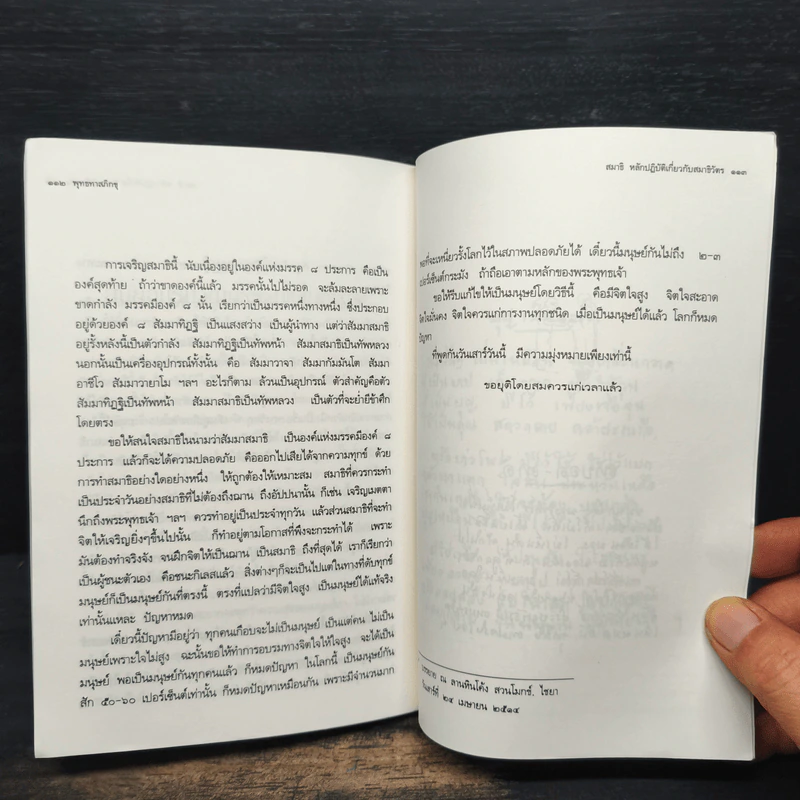 ๑๑๒ พุทธทาสภิกขุ
การเจริญสมาธินี้ นับเนื่องอยู่ในองค์แห่งมรรค ๘ ประการ คือเป็น
องค์สุดท้าย ถ้าว่าขาดองค์นี้แล้ว มรรคนั้นไปไม่รอด จะล้มละลายเพราะ
ขาดกำลัง มรรคมีองค์ ๘ นั้น เรียกว่าเป็นมรรคหนึ่งทางหนึ่ง ซึ่งประกอบ
อยู่ด้วยองค์ ๘ สัมมาทิฏฐิ เป็นแสงสว่าง เป็นผู้นำทาง แต่ว่าสัมมาสมาธิ
อยู่รั้งหลังนี้เป็นตัวกำลัง สัมมาทิฏฐิเป็นทัพหน้า สัมมาสมาธิเป็นทัพหลวง
นอกนั้นเป็นเครื่องอุปกรณ์ทั้งนั้น คือ สัมมาวาจา สัมมากัมมันโต สัมมา
อาชีโว สัมมาวายาโม ฯลฯ อะไรก็ตาม ล้วนเป็นอุปกรณ์ ตัวสำคัญคือตัว
สัมมาทิฏฐิเป็นทัพหน้า สัมมาสมาธิเป็นทัพหลวง เป็นตัวที่จะย่ำยีข้าศึก
โดยตรง
ขอให้สนใจสมาธิในนามว่าสัมมาสมาธิ เป็นองค์แห่งมรรคมีองค์ ๘
ประการ แล้วก็จะได้ความปลอดภัย คือออกไปเสียได้จากความทุกข์ ด้วย
การทำสมาธิอย่างใดอย่างหนึ่ง ให้ถูกต้องให้เหมาะสม สมาธิที่ควรกระทำ
เป็นประจำวันอย่างสมาธิที่ไม่ต้องถึงฌาน ถึงอัปปนานั้น ก็เช่น เจริญเมตตา
นึกถึงพระพุทธเจ้า ฯลฯ ควรทำอยู่เป็นประจำทุกวัน แล้วส่วนสมาธิที่จะทำ
จิตให้เจริญยิ่งๆขึ้นไปนั้น ก็ทำอยู่ตามโอกาสที่พึงจะกระทำได้ เพราะ
มันต้องทำจริงจัง จนฝึกจิตให้เป็นฌาน เป็นสมาธิ ถึงที่สุดได้ เราก็เรียกว่า
เป็นผู้ชนะตัวเอง คือชนะกิเลสแล้ว สิ่งต่างๆก็จะเป็นไปแต่ในทางที่ดับทุกข์
มนุษย์ก็เป็นมนุษย์กันที่ตรงนี้ ตรงที่แปลว่ามีจิตใจสูง เป็นมนุษย์ได้แท้จริง
เท่านั้นแหละ ปัญหาหมด
เดี๋ยวนี้ปัญหามีอยู่ว่า ทุกคนเกือบจะไม่เป็นมนุษย์ เป็นแต่คน ไม่เป็น
มนุษย์เพราะใจไม่สูง ฉะนั้นขอให้ทำการอบรมทางจิตใจให้ใจสูง จะได้เป็น
มนุษย์ พอเป็นมนุษย์กันทุกคนแล้ว ก็หมดปัญหา ในโลกนี้ เป็นมนุษย์กัน
สัก ๕๐-๖๐ เปอร์เซ็นต์เท่านั้น ก็หมดปัญหาเหมือนกัน เพราะมีจำนวนมาก
สมาธิ หลักปฏิบัติเกี่ยวกับสมาธิวัตร ๑๑๓
พอที่จะเหนี่ยวรั้งโลกไว้ในสภาพปลอดภัยได้ เดี๋ยวนี้มนุษย์กันไม่ถึง ๒-๓
เปอร์เซ็นต์กระมัง ถ้าถือเอาตามหลักของพระพุทธเจ้า
ขอให้รีบแก้ไขให้เป็นมนุษย์โดยวิธีนี้ คือมีจิตใจสูง จิตใจสะอาด
จิตใจมั่นคง จิตใจควรแก่การงานทุกชนิด เมื่อเป็นมนุษย์ได้แล้ว โลกก็หมด
ปัญหา
ที่พูดกันวันเสาร์วันนี้ มีความมุ่งหมายเพียงเท่านี้
ขอยุติโดยสมควรแก่เวลาแล้ว
บรรยาย ณ ลานหินโค้ง สวนโมกข์, ไชยา
วันเสาร์ที่ ๒๔ เมษายน ๒๕๑๔